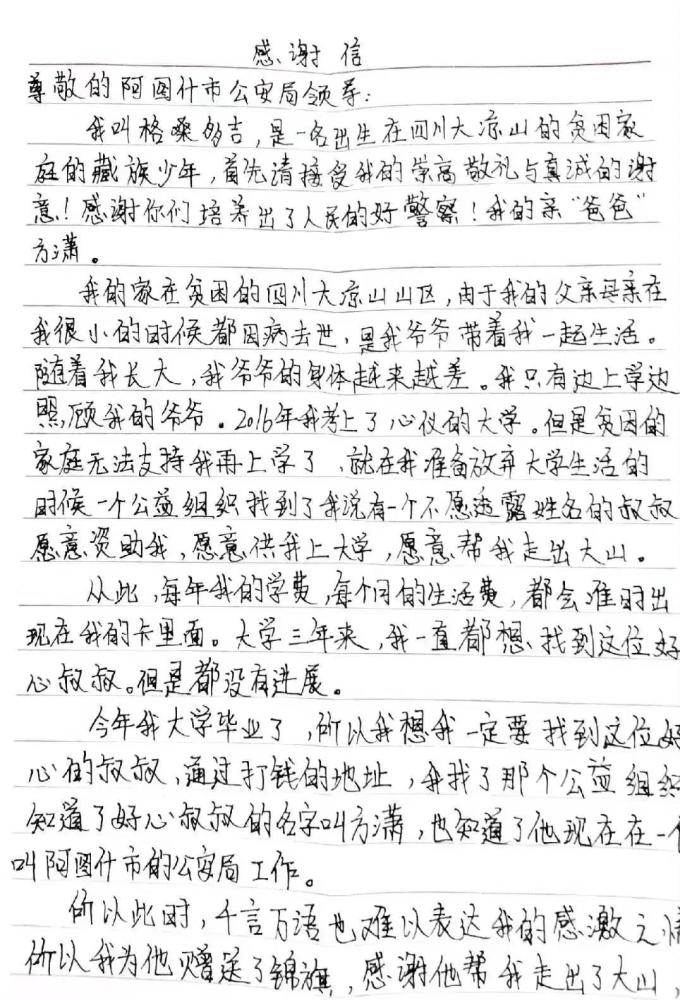 感谢信
尊敬的阿图什市公安局领导：
我叫格桑多吉，是一名出生在四川大凉山的贫困家
庭的藏族少年，首先请接受我的崇高敬礼与真诚的谢
意！感谢你们培养出了人民的好警察！我的亲“爸爸”
方潇。
我的家在贫困的四川大凉山山区，由于我的父亲母亲在
我很小的时候都因病去世，是我爷爷带着我一起生活。
随着我长大，我爷爷的身体越来越差。我只有边上学边
照顾我的爷爷。2016年我考上了心仪的大学。但是贫困的
家庭无法支持我再上学了，就在我准备放弃大学生活的
时候一个公益组织找到了我说有一个不愿透露姓名的叔叔
愿意资助我，愿意供我上大学，愿意帮我走出大山。
从此，每年我的学费，每个月的生活费，都会准时出
现在我的卡里面。大学三年来，我一直都想找到这位好
心叔叔。但是都没有进展。
今年我大学毕业了，所以我想我一定要找到这位好
心的叔叔，通过打钱的地址，我找了那个公益组织
知道了好心叔叔的名字叫方潇，也知道了他现在在一个
叫阿图什市的公安局工作。
所以此时，千言万语也难以表达我的感激之情
所以我为他赠送了锦旗，感谢他帮我走出了大山，